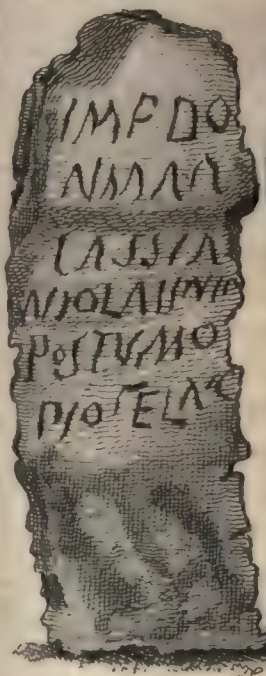 IMP DO
CASSIA
NIOLATINIO
POSTVMO
PIO FEL AVG